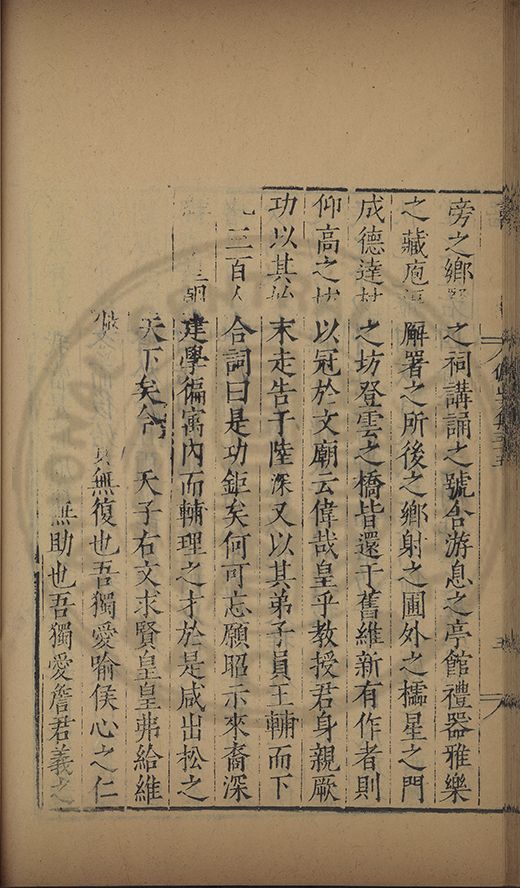 旁之鄉賢之祠講誦之號舍游息之亭館禮器雅樂
之藏庖湢廨署之所後之鄉射之圃外之櫺星之門
成德達材之坊登雲之橋皆還于舊維新有作者則
仰高之坊以冠於文廟云偉哉皇乎教授君身親厥
功以其始末走告子陸深又以其弟子員王輔而下
三百人合詞曰是功鉅矣何可忘願昭示來裔深
建學徧寓內而輔理之才於是咸出松之
天下矣今天子右文求賢皇皇弗給維
無復也吾獨愛喻侯心之仁
無助也吾獨愛詹君義之